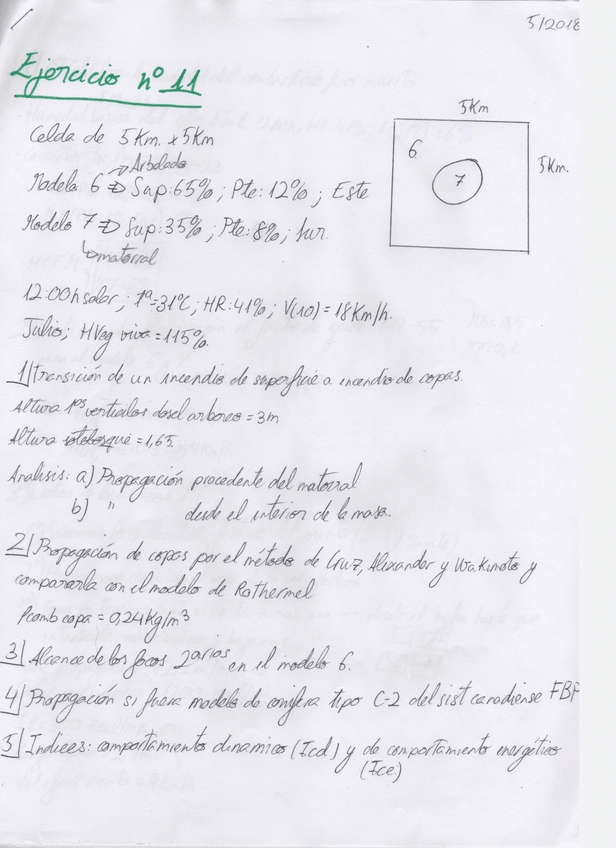 5/2018
Ejercicio nº 11
5Km
Celda de 5Km. x 5Km
6
7
5Km.
Arbolado
Modelo 6 => Sup: 65% ; Pte: 12% ; Este
Modelo 7 => Sup: 35% ; Pte: 8% ; Sur.
matorral
12:00h solar ; Tª=31ºC ; HR: 41% ; V(10) = 18Km/h.
Julio; HVeg viva = 115%.
1/ Transición de un incendio de superficie a incendio de copas.
Altura 1ºs verticilos dosel arboreo = 3m
Altura = 1,65
Analisis: a) Propagación procedente del matorral
b) " desde el interior de la masa.
2/ Propagación de copas por el método de Cruz, Alexander y Wakimoto y
compararla con el modelo de Rothermel
Pcomb copa = 0,24 Kg/m³
3/ Alcance de los focos 2arios en el modelo 6.
4/ Propagación si fuera modelo de conifera tipo C-2 del sist canadiense FBP
5/ Indices: comportamiento dinamico (Icd) y de comportamiento energético
(Ice.)